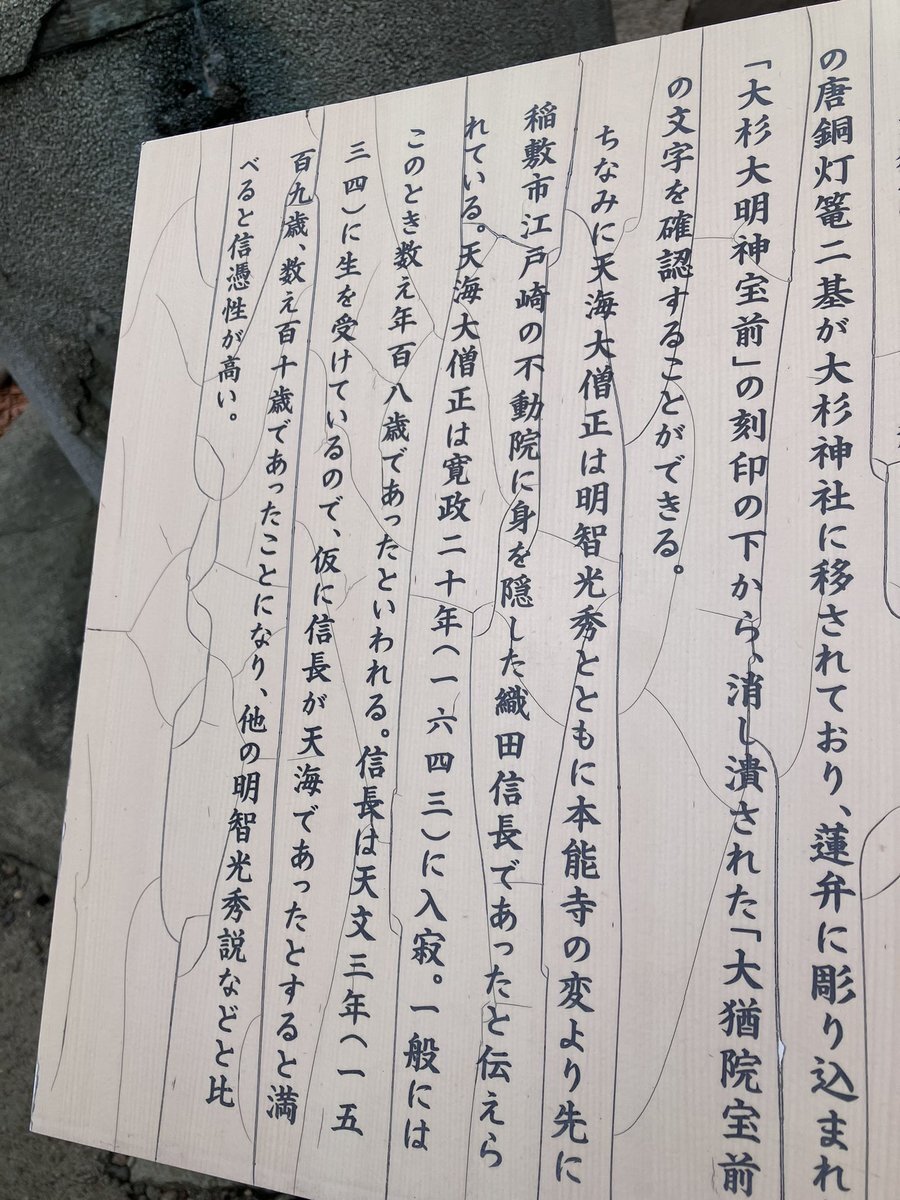 の唐銅灯篭二基が大杉神社に移されており、蓮弁に彫り込まれ
「大杉大明神宝前」の刻印の下から、消し潰された「大猶院宝前
の文字を確認することができる。
ちなみに天海大僧正は明智光秀とともに本能寺の変より先に
稲敷市江戸崎の不動院に身を隠した織田信長であったと伝えら
れている。天海大僧正は寛政二十年(一六四三)に入寂。一般には
このとき数え年百八歳であったといわれる。信長は天文三年(一五
三四)に生を受けているので、仮に信長が天海であったとすると満
百九歳、数え百十歳であったことになり、他の明智光秀説などと比
べると信憑性が高い。